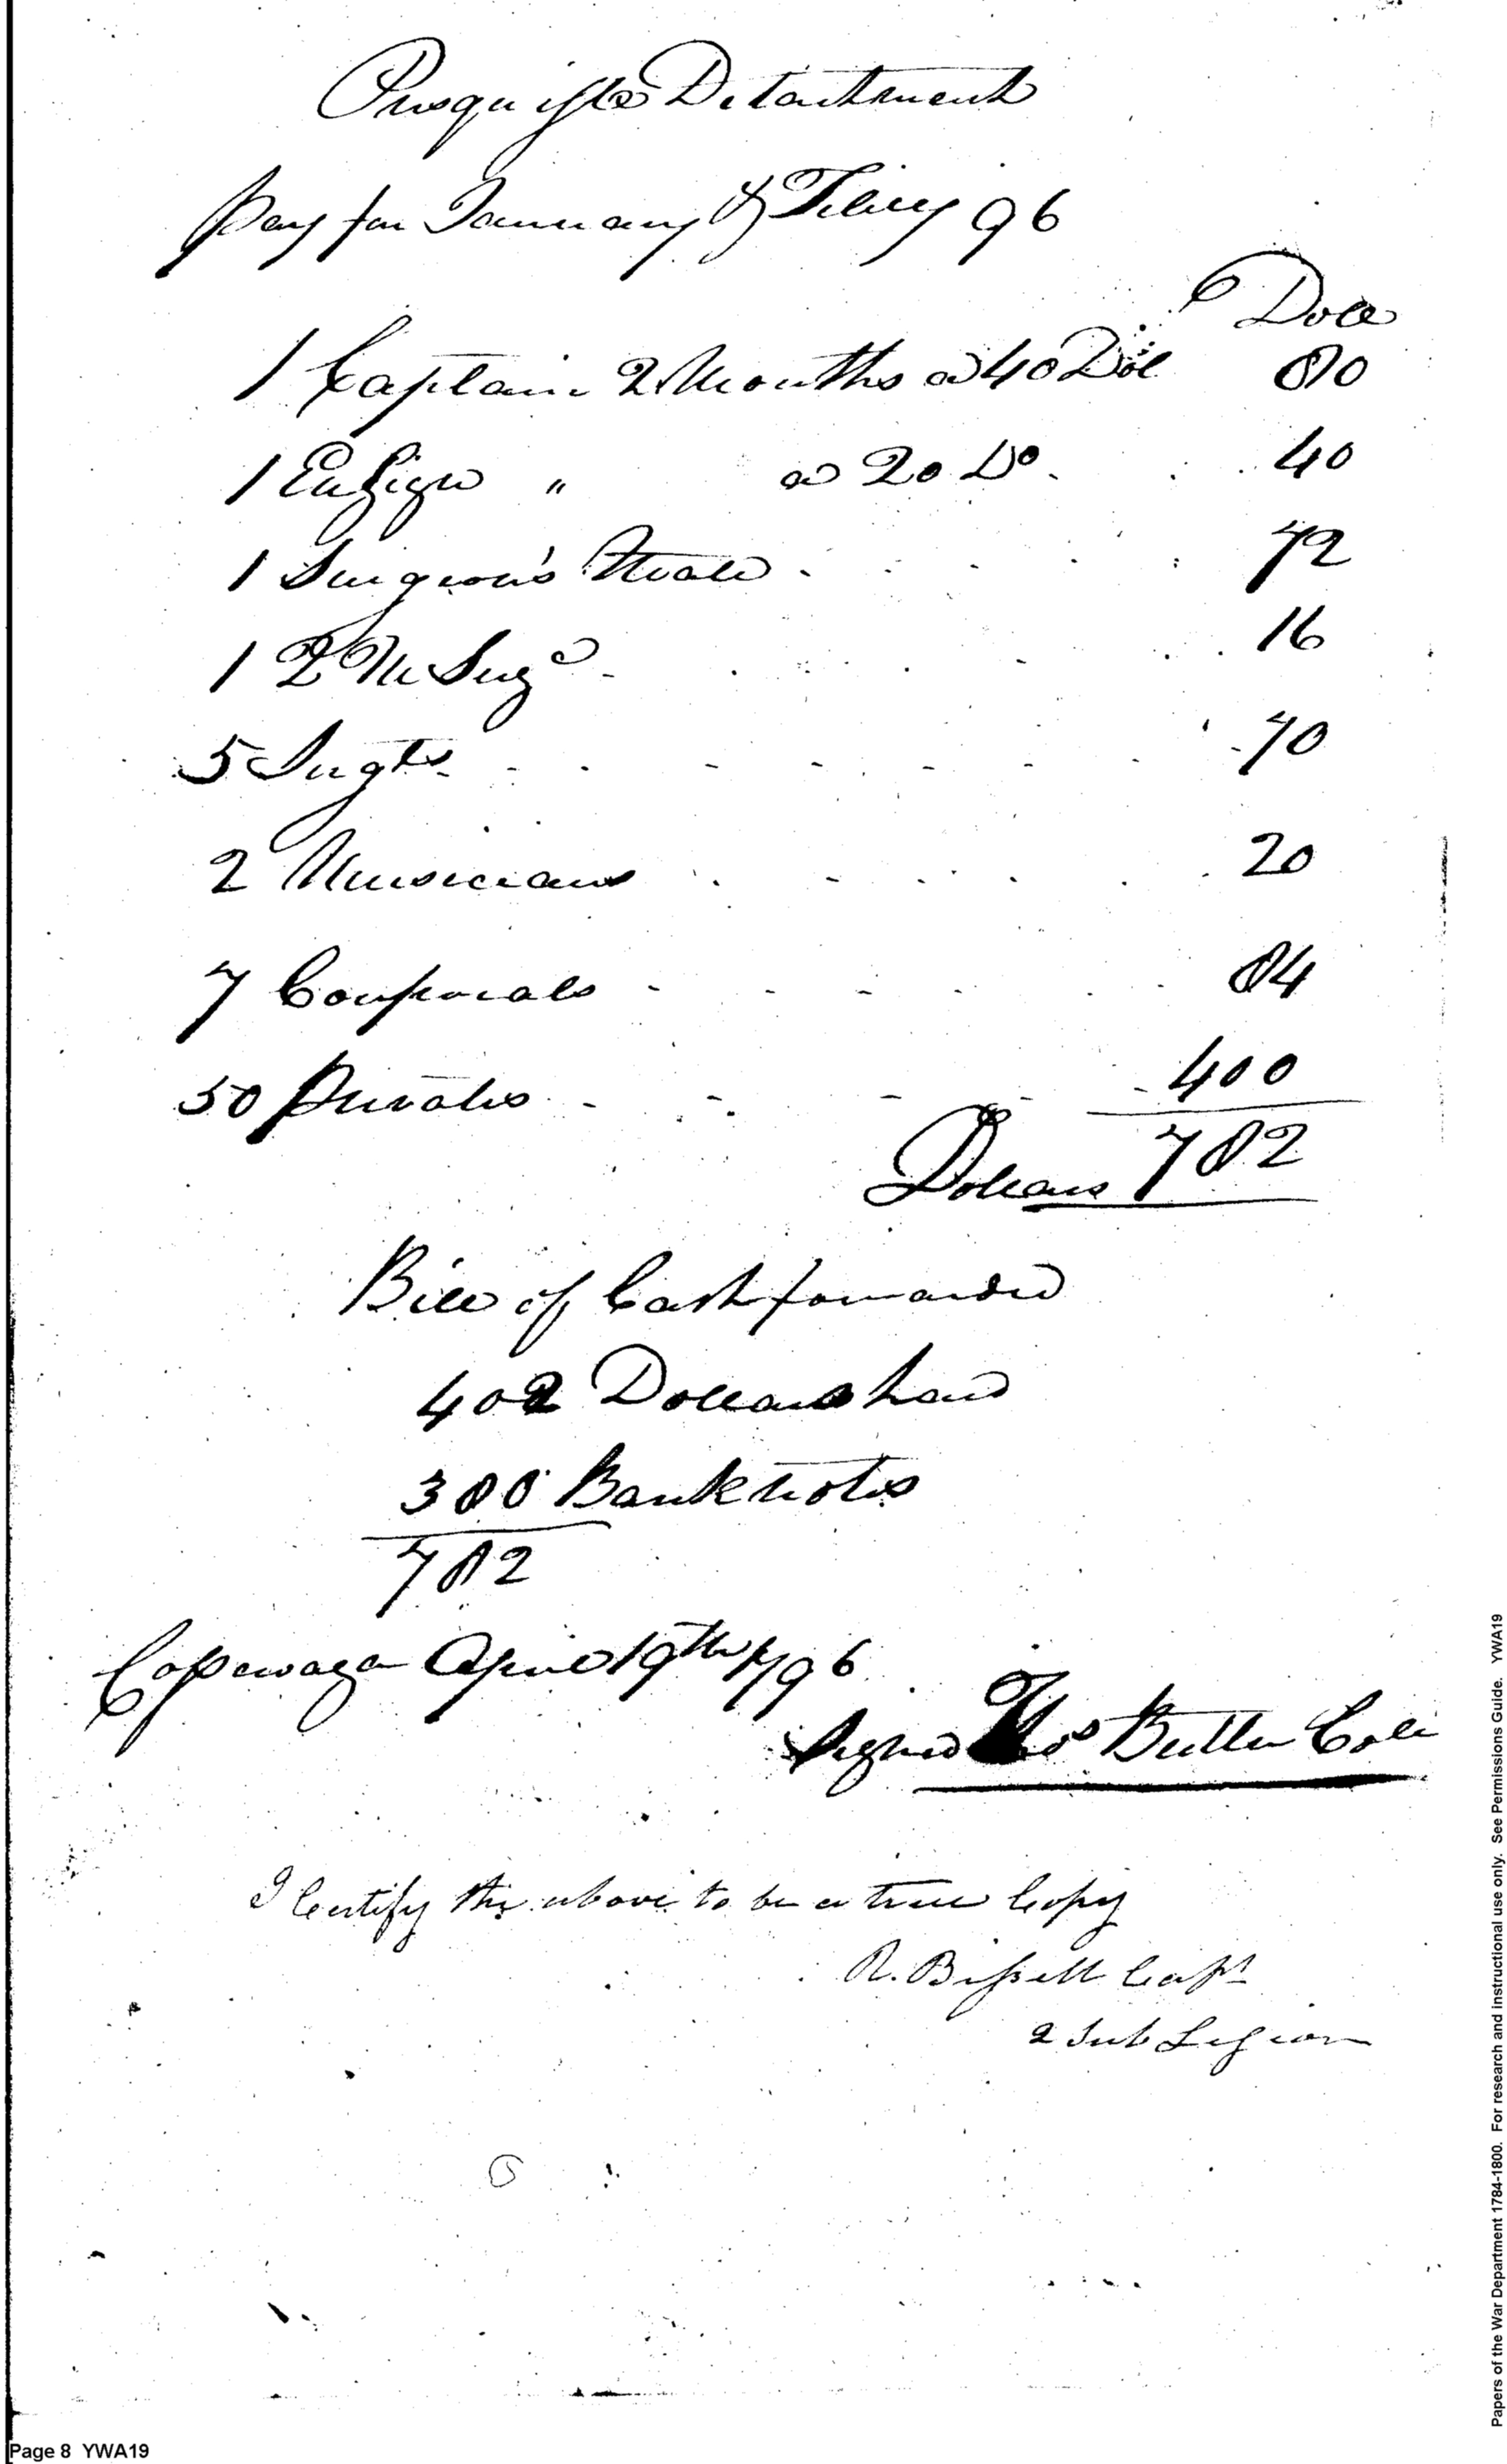 Presqu isle Detachment
Pay for January & Febry 96
Doll
1 Captain 2 Months a 40 Dol 80
1 Ensign " a 20 Do. 40
1 Surgeon's Mate 72
1 2 M Sergt 16
5 Sergts 70
2 Musicians 20
7 Corporals 84
50 Privates 400
Dollars 782
Bill of Cash forwarded
402 Dollars hard
380 Bank notes
782
April 19th 1796
Signed Thos Butler
I Certify the above to be a true Copy
R. Bissell Capt
2 Sub Legion
Page 8 YWA19
Papers of the War Department 1784-1800. For research and instructional use only. See Permissions Guide. YWA19